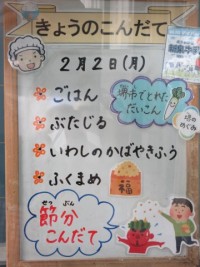 きょうのこんだて
2月2日(月)
ごはん
ぶたじる
いわしのかばやきふう
ふくまめ
堺市でとれた
だいこん
福
せつ ぶん
節分
こんだて